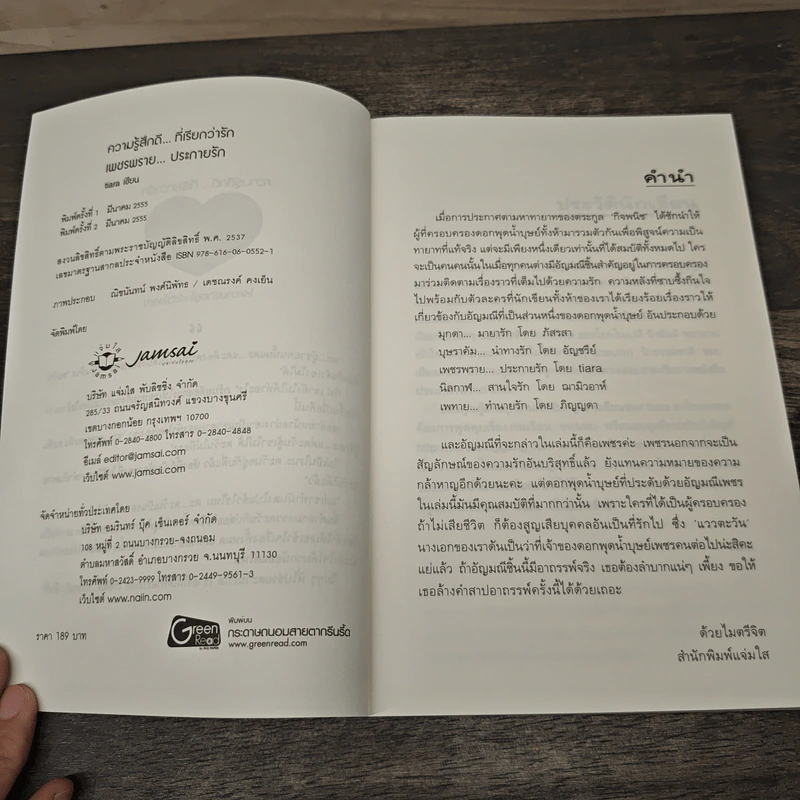 ความรู้สึกดี... ที่เรียกว่ารัก
เพชรพราย... ประกายรัก
tiara เขียน
พิมพ์ครั้งที่ 1 มีนาคม 2555
พิมพ์ครั้งที่ 2 มีนาคม 2555
สงวนลิขสิทธิ์ตามพระราชบัญญัติลิขสิทธิ์ พ.ศ. 2537
เลขมาตรฐานสากลประจำหนังสือ ISBN 978-616-06-0552-1
ภาพประกอบ ณิชนันทน์ พงศ์นิพัทธ / เดชณรงค์ คงเย็น
จัดพิมพ์โดย
แจ่มใส
Jamsai
Jamsai
บริษัท แจ่มใส พับลิชชิ่ง จำกัด
285/33 ถนนจรัญสนิทวงศ์ แขวงบางขุนศรี
เขตบางกอกน้อย กรุงเทพฯ 10700
โทรศัพท์ 0-2840-4800 โทรสาร 0-2840-4848
อีเมล์ editor@jamsai.com
เว็บไซต์ www.jamsai.com
จัดจำหน่ายทั่วประเทศโดย
บริษัท อมรินทร์ บุ๊ค เซ็นเตอร์ จำกัด
108 หมู่ที่ 2 ถนนบางกรวย-จงถนอม
ตำบลมหาสวัสดิ์ อำเภอบางกรวย จ.นนทบุรี 11130
โทรศัพท์ 0-2423-9999 โทรสาร 0-2449-9561-3
เว็บไซต์ www.naiin.com
ราคา 189 บาท
Green Read
พิมพ์บน
กระดาษถนอมสายตากรีนรี้ด
www.greenread.com
คำนำ
เมื่อการประกาศตามหาทายาทของตระกูล 'กิจพนิช' ได้ชักนำให้
ผู้ที่ครอบครองดอกพุดน้ำบุษย์ทั้งห้ามารวมตัวกันเพื่อพิสูจน์ความเป็น
ทายาทที่แท้จริง แต่จะมีเพียงหนึ่งเดียวเท่านั้นที่ได้สมบัติทั้งหมดไป ใคร
จะเป็นคนคนนั้นในเมื่อทุกคนต่างมีอัญมณีชิ้นสำคัญอยู่ในการครอบครอง
มาร่วมติดตามเรื่องราวที่เต็มไปด้วยความรัก ความหลังที่ซาบซึ้งกินใจ
ไปพร้อมกับตัวละครที่นักเขียนทั้งห้าของเราได้เรียงร้อยเรื่องราวให้
เกี่ยวข้องกับอัญมณีที่เป็นส่วนหนึ่งของดอกพุดน้ำบุษย์ อันประกอบด้วย
มุกดา... มายารัก โดย ภัสรสา
บุษราคัม... นำทางรัก โดย อัญชรีย์
เพชรพราย... ประกายรัก โดย tiara
นิลกาฬ... สานใจรัก โดย ฌามิวอาห์
เพทาย... ทำนายรัก โดย ภิญญดา
และอัญมณีที่จะกล่าวในเล่มนี้ก็คือเพชรค่ะ เพชรนอกจากจะเป็น
สัญลักษณ์ของความรักอันบริสุทธิ์แล้ว ยังแทนความหมายของความ
กล้าหาญอีกด้วยนะคะ แต่ดอกพุดน้ำบุษย์ที่ประดับด้วยอัญมณีเพชร
ในเล่มนี้มันมีคุณสมบัติที่มากกว่านั้น เพราะใครที่ได้เป็นผู้ครอบครอง
ถ้าไม่เสียชีวิต ก็ต้องสูญเสียบุคคลอันเป็นที่รักไป ซึ่ง 'แววตะวัน'
นางเอกของเราดันเป็นว่าที่เจ้าของดอกพุดน้ำบุษย์เพชรคนต่อไปน่ะสิคะ
แย่แล้ว ถ้าอัญมณีชิ้นนี้มีอาถรรพ์จริง เธอต้องลำบากแน่ๆ เพี้ยง ขอให้
เธอล้างคำสาปอาถรรพ์ครั้งนี้ได้ด้วยเถอะ
ด้วยไมตรีจิต
สำนักพิมพ์แจ่มใส